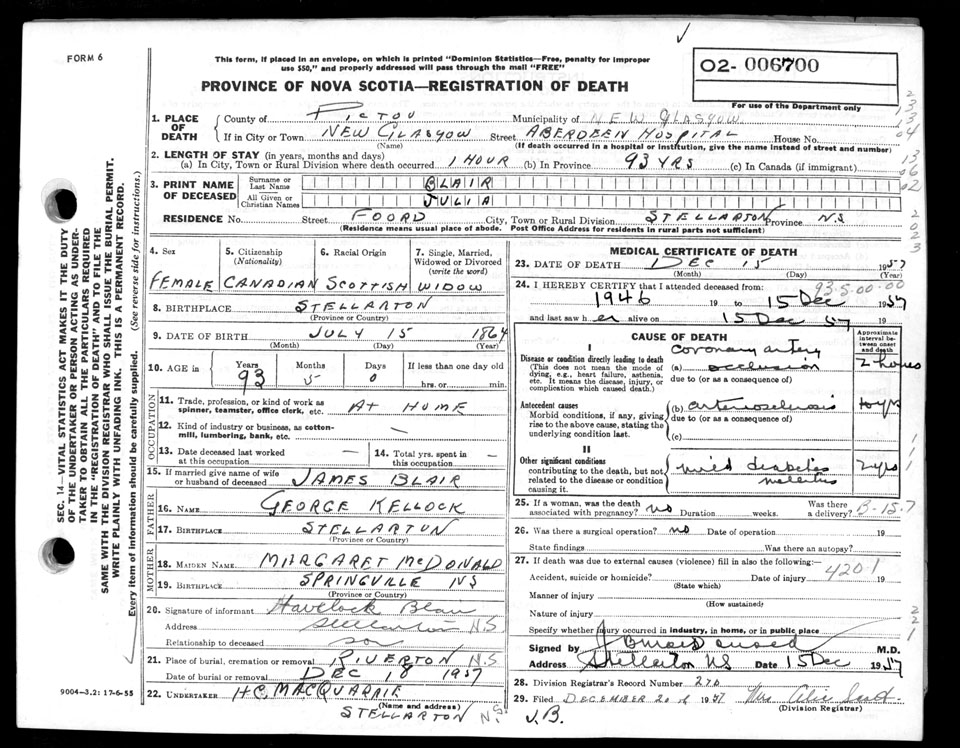 FORM 6
This form, if placed in an envelope, on which is printed "Dominion Statistics—Free, penalty for improper
use $50," and properly addressed will pass through the mail "FREE"
PROVINCE OF NOVA SCOTIA—REGISTRATION OF DEATH
02- 006700
For use of the Department only
1. PLACE OF DEATH
County of PICTOU Municipality of NEW GLASGOW
If in City or Town NEW GLASGOW Street ABERDEEN HOSPITAL House No.
(Name) (If death occurred in a hospital or institution, give the name instead of street and number)
2. LENGTH OF STAY (in years, months and days)
(a) In City, Town or Rural Division where death occurred 1 HOUR (b) In Province 93 YRS (c) In Canada (if immigrant)
3. PRINT NAME OF DECEASED
Surname or Last Name BLAIR
All Given or Christian Names JULIA
RESIDENCE No. Street FOORD City, Town or Rural Division STELLARTON Province NS
(Residence means usual place of abode. Post Office Address for residents in rural parts not sufficient)
4. Sex
FEMALE
5. Citizenship
(Nationality)
CANADIAN
6. Racial Origin
SCOTTISH
7. Single, Married,
Widowed or Divorced
(write the word)
WIDOW
8. BIRTHPLACE STELLARTON
(Province or Country)
9. DATE OF BIRTH JULY 15 1864
(Month) (Day) (Year)
10. AGE in Years Months Days If less than one day old
93 5 0 hrs. or min.
OCCUPATION
11. Trade, profession, or kind of work as
spinner, teamster, office clerk, etc. AT HOME
12. Kind of industry or business, as cotton-
mill, lumbering, bank, etc. —
13. Date deceased last worked
at this occupation —
14. Total yrs. spent in
this occupation —
15. If married give name of wife
or husband of deceased JAMES BLAIR
FATHER
16. NAME GEORGE KELLOCK
17. BIRTHPLACE STELLARTON
(Province or Country)
MOTHER
18. MAIDEN NAME MARGARET McDONALD
19. BIRTHPLACE SPRINGVILLE NS
(Province or Country)
20. Signature of informant Havelock Blair
Address Stellarton N.S
Relationship to deceased son
21. Place of burial, cremation or removal RIVERTON N.S
Date of burial, cremation or removal DEC 18 1957
22. UNDERTAKER H.C. MACQUARRIE
(Name and address)
STELLARTON N.S
9004-3.2: 17-6-55
SEC. 14—VITAL STATISTICS ACT MAKES IT THE DUTY
OF THE UNDERTAKER OR PERSON ACTING AS UNDER-
TAKER TO OBTAIN ALL THE PARTICULARS REQUIRED
IN THE "REGISTRATION OF DEATH" AND TO FILE THE
SAME WITH THE DIVISION REGISTRAR WHO SHALL ISSUE THE BURIAL PERMIT.
WRITE PLAINLY WITH UNFADING INK. THIS IS A PERMANENT RECORD.
Every item of information should be carefully supplied. (See reverse side for instructions.)
MEDICAL CERTIFICATE OF DEATH
23. DATE OF DEATH DEC 15 1957
(Month) (Day) (Year)
24. I HEREBY CERTIFY that I attended deceased from: 93-5-00-00
1946 19 to 15 Dec 1957
and last saw her alive on 15 Dec 57 19
CAUSE OF DEATH
Approximate interval between onset and death
I
Disease or condition directly leading to death
(This does not mean the mode of
dying, e.g., heart failure, asthenia,
etc. It means the disease, injury, or
complication which caused death.)
coronary artery
(a) occlusion 2 hours
due to (or as a consequence of)
Antecedent causes
Morbid conditions, if any, giving
rise to the above cause, stating the
underlying condition last.
(b) arteriosclerosis 10 yrs
due to (or as a consequence of)
(c)
II
Other significant conditions
contributing to the death, but not
related to the disease or condition
causing it.
mild diabetes 2 yrs
mellitus
25. If a woman, was the death
associated with pregnancy? no Duration weeks. Was there
a delivery? B-15-7
26. Was there a surgical operation? no Date of operation 19
State findings Was there an autopsy?
27. If death was due to external causes (violence) fill in also the following:—
Accident, suicide or homicide? Date of injury 4201 19
(State which)
Manner of injury
(How sustained)
Nature of injury
Specify whether injury occurred in industry, in home, or in public place
Signed by M.D.
Address Stellarton NS Date 15 Dec 1957
28. Division Registrar's Record Number 270
29. Filed DECEMBER 20 1957 Mrs Alice Scott
(Division Registrar)
J.B.